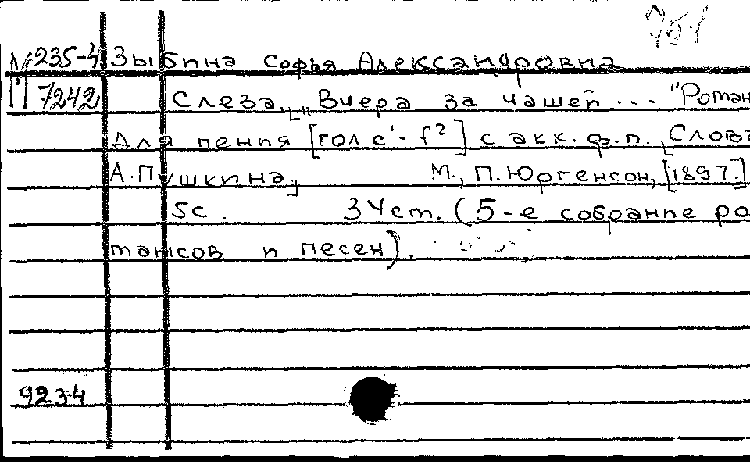 951
М 235-4 Зыбина Софья Александровна
7242 Слеза. „Вчера за чашей ... "Роман
Для пения [гол c¹- f²] с акк. ф.п., Слова
А. Пушкина, М., П. Юргенсон, [1897.]
5с. 34 см. (5-е собрание ро
мансов и песен).
9234